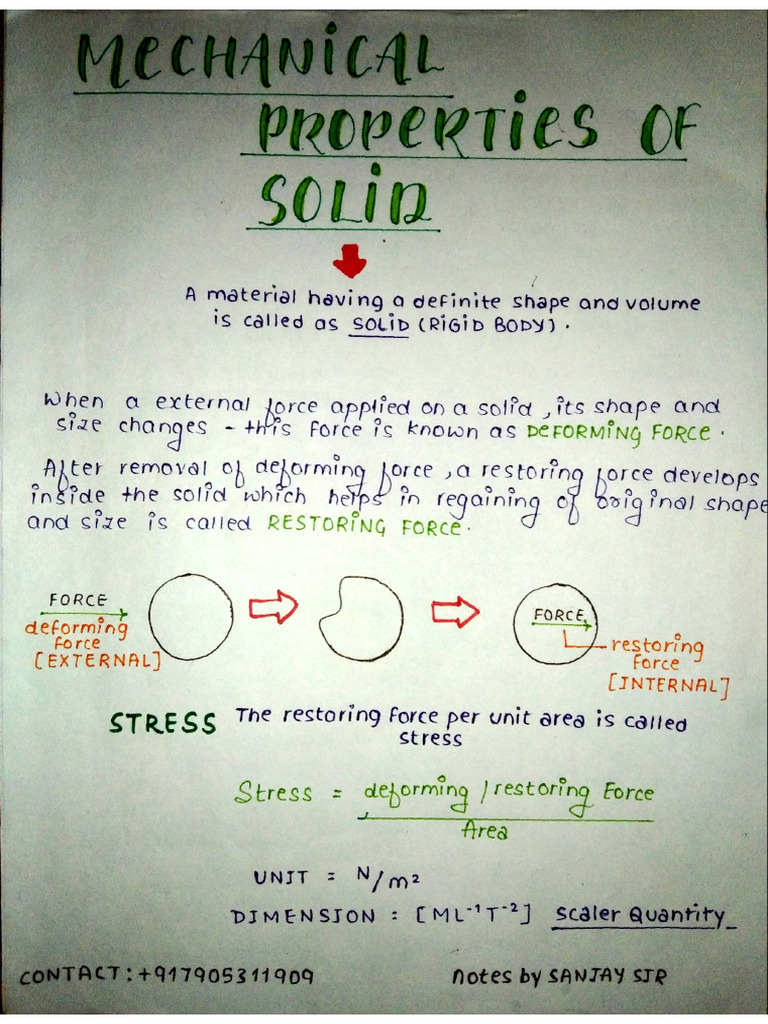 MECHANICAL
PROPERTIES OF
SOLID
A material having a definite shape and volume
is called as SOLID (RIGID BODY).
When a external force applied on a solid, its shape and
size changes - this force is known as DEFORMING FORCE.
After removal of deforming force, a restoring force develops
inside the solid which helps in regaining of original shape
and size is called RESTORING FORCE.
FORCE
deforming
force
[EXTERNAL]
FORCE
restoring
force
[INTERNAL]
STRESS The restoring force per unit area is called
stress
Stress = deforming / restoring Force
Area
UNIT = N/m²
DIMENSION : [ML⁻¹T⁻²] Scaler Quantity
CONTACT: +917905311909 notes by SANJAY SIR